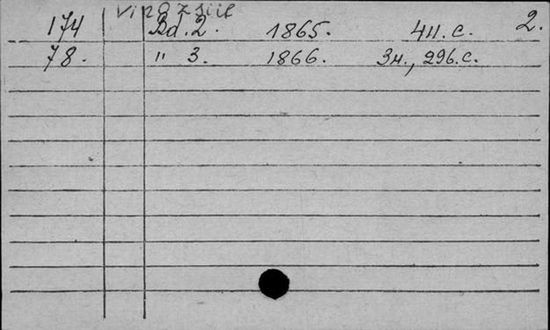 2.
174 Bd. 2. 1865. 411. c.
78. " 3. 1866. 3н., 296. c.